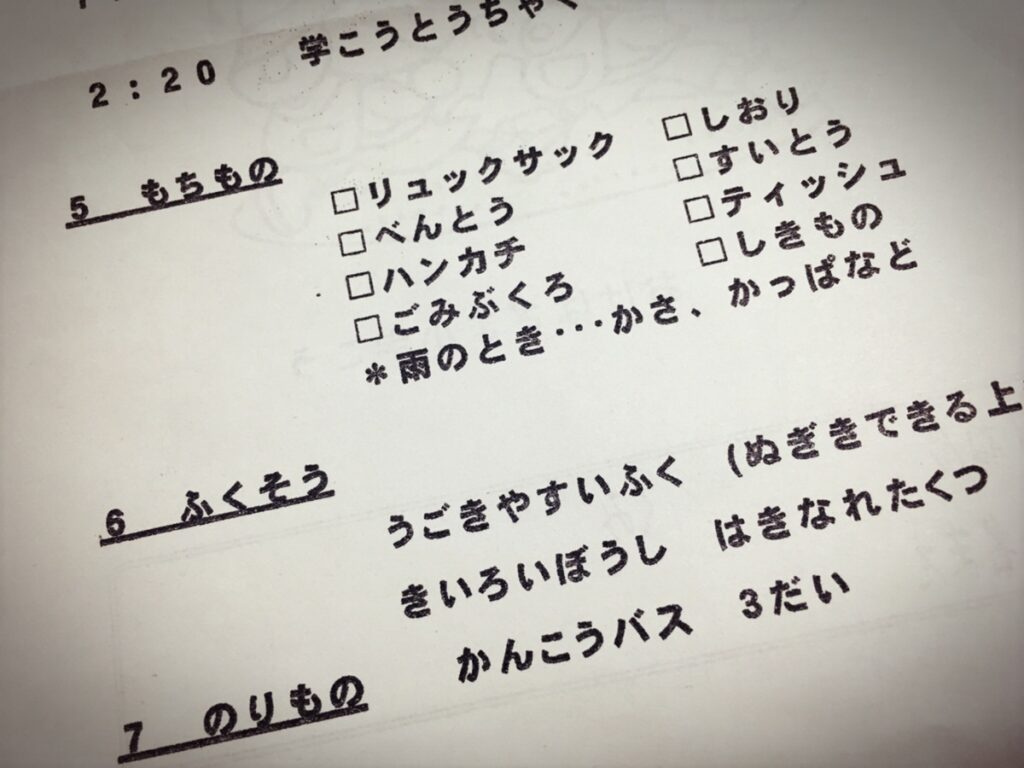 2：20　学こうとうちゃく
5　もちもの　□リュックサック　□しおり
□べんとう　□すいとう
□ハンカチ　□ティッシュ
□ごみぶくろ　□しきもの
＊雨のとき･･･かさ、かっぱなど
6　ふくそう　うごきやすいふく　(ぬぎきできる上
きいろいぼうし　はきなれたくつ
7　のりもの　かんこうバス　3だい